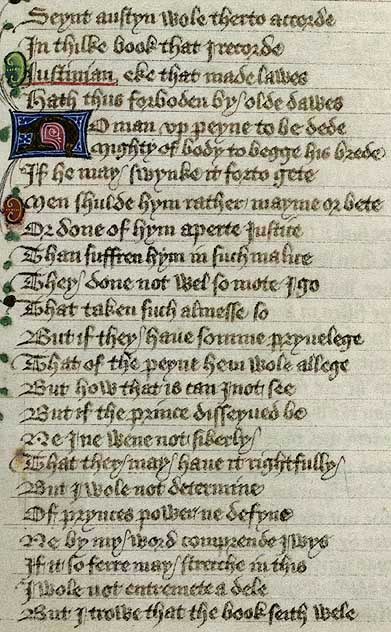 Seynt austyn wole therto accorde
In thilke book that I recorde
Justinian eke that made lawes
Hath thus forboden by olde dawes
No man vp peyne to be dede
Mighty of body to begge his brede
If he may swynke it forto gete
Men shulde hym rather mayme or bete
Or done of hym aperte Justice
Than suffren hym in such malice
They done not wel so mote I go
That taken such almesse so
But if they haue somme pryuelege
That of the peyne hem wole allege
But how that is can I not see
But if the prince disseyued be
Ne I ne wene not sikerly
That they may haue it rightfully
But I wole not determine
Of prynces power ne defyne
Ne by my word comprende I wys
If it so ferre may strecche in this
I wole not entremete a dele
But I trowe that the book seith wele